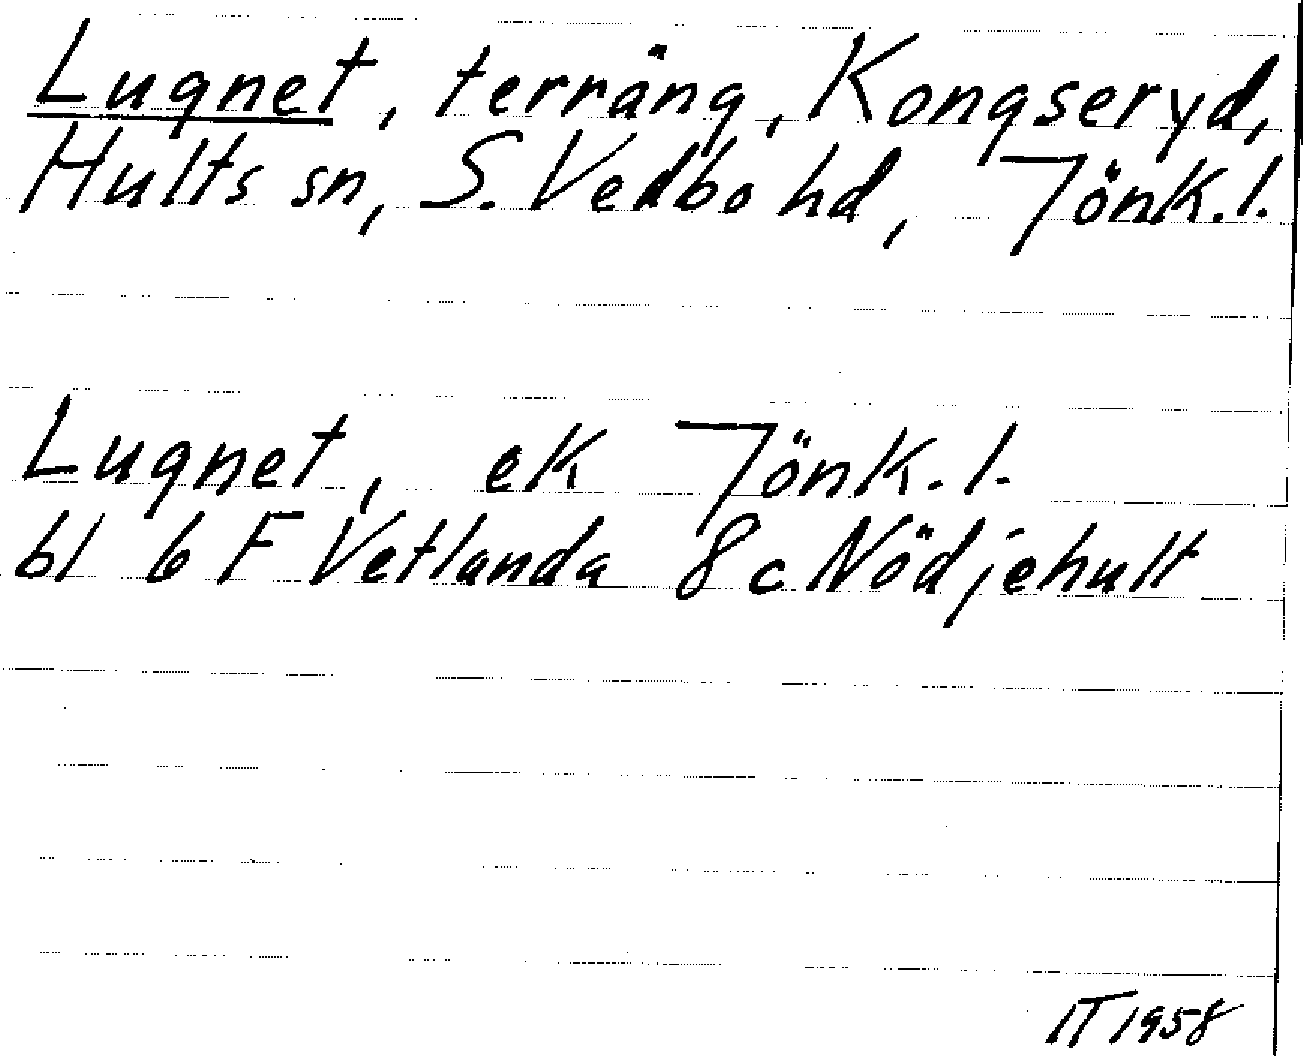 Lugnet, terräng, Kongseryd,
Hults sn, S. Vedbo hd, Jönk. l.
Lugnet, ek Jönk. l.
bl 6 F Vetlanda 8 c Nödjehult
IT 1958